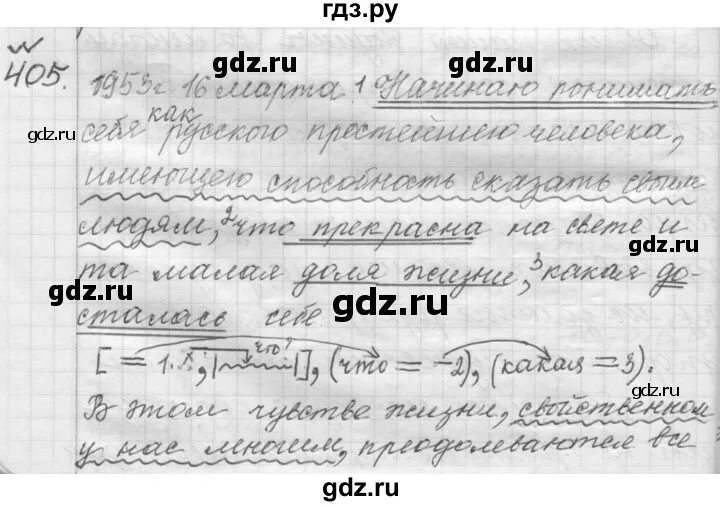 гдз.ру
405.
1953г 16 марта 1 Начинаю понимать
себя как русского простейшего человека,
имеющего способность сказать своим
людям, 2 что прекрасна на свете и
та малая доля жизни, 3 какая до-
сталась себе.
что?
[ = 1. X, |~~~~|], (что = – 2), (какая = 3).
В этом чувстве жизни, свойственном
у нас многим, преодолеваются все
gdz.ru
gdz.ru
gdz.ru
gdz.ru
gdz.ru
gdz.ru
gdz.ru
gdz.ru
gdz.ru
gdz.ru
gdz.ru
gdz.ru
gdz.ru